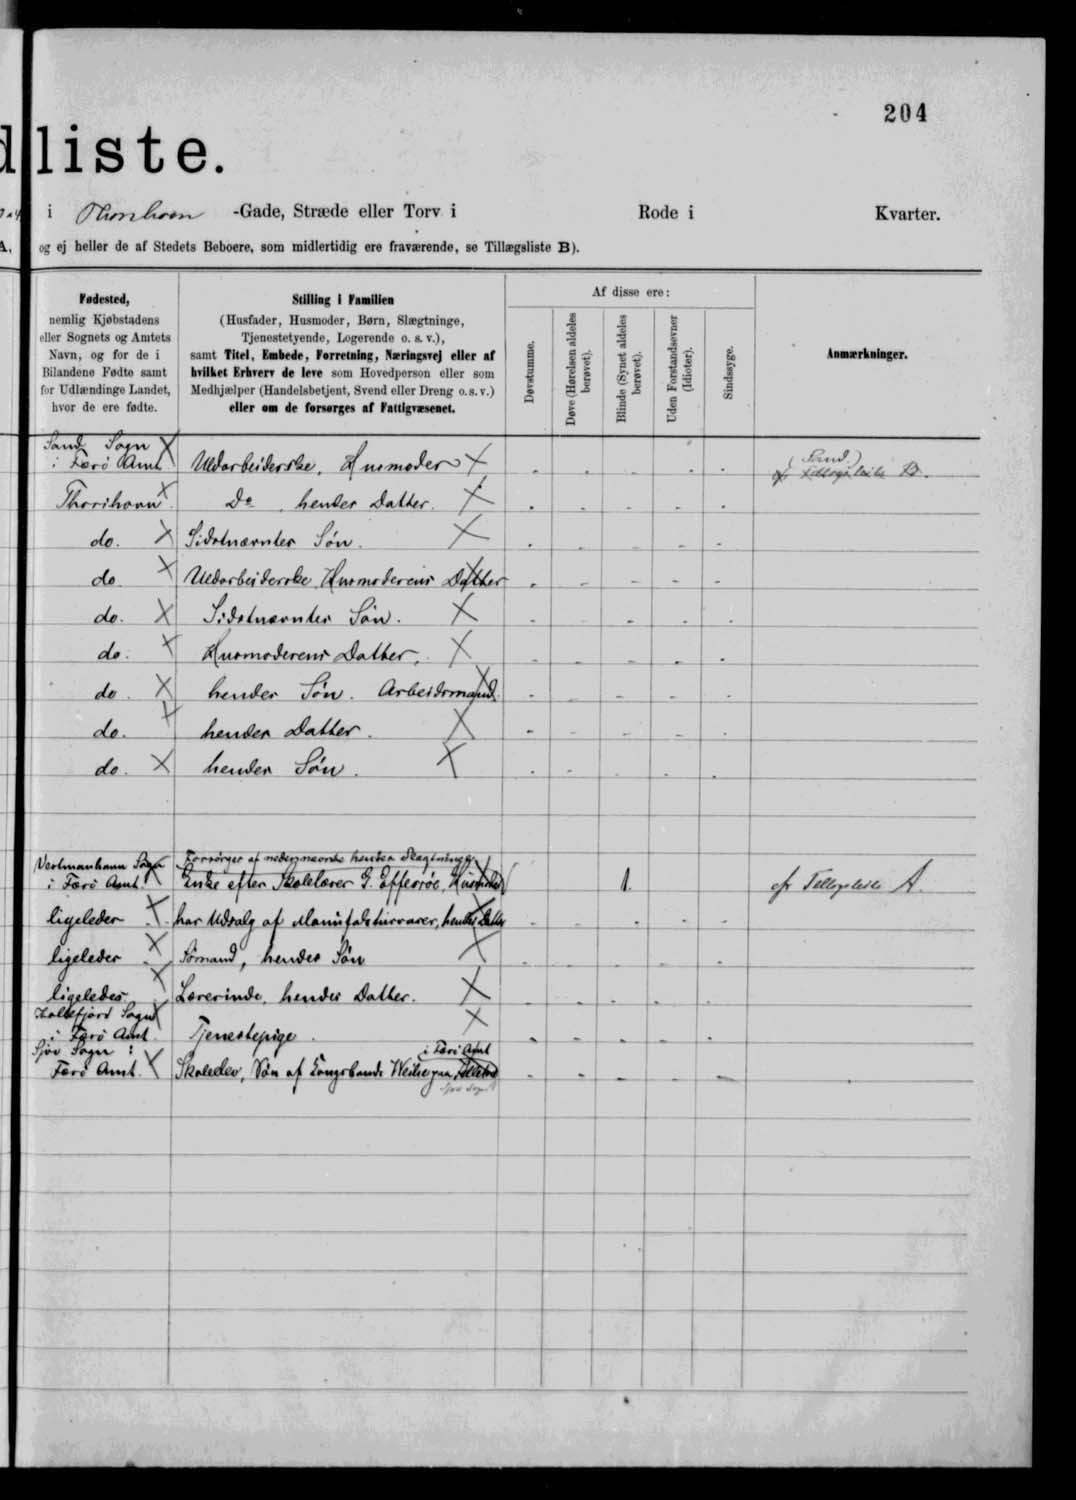 204
liste.
i Thorshavn -Gade, Stræde eller Torv i Rode i Kvarter.
A, og ej heller de af Stedets Beboere, som midlertidig ere fraværende, se Tillægsliste B).
Fødested,
nemlig Kjøbstadens
eller Sognets og Amtets
Navn, og for de i
Bilandene Fødte samt
for Udlændinge Landet,
hvor de ere fødte.
Stilling i Familien
(Husfader, Husmoder, Børn, Slægtninge,
Tjenestetyende, Logerende o. s. v.),
samt Titel, Embede, Forretning, Næringsvej eller af
hvilket Erhverv de leve som Hovedperson eller som
Medhjælper (Handelsbetjent, Svend eller Dreng o. s. v.)
eller om de forsørges af Fattigvæsenet.
Af disse ere:
Døvstumme.
Døve (Hørelsen aldeles
berøvet).
Blinde (Synet aldeles
berøvet).
Uden Forstandsevner
(Idioter).
Sindssyge.
Anmærkninger.
Sand Sogn
i Færö Amt. Uldarbeiderske, Husmoder
(Sand.)
cfr Tillægsliste B.
Thorshavn Do, hendes Datter.
do. Sidstnævntes Sön.
do Uldarbeiderske, Husmoderens Datter
do. Sidstnævntes Sön.
do. Husmoderens Datter.
do. hendes Sön. Arbeidsmand.
do. hendes Datter.
do. hendes Sön.
Vestmanhavn Sogn Forsörges af nedennævnte hendes Slægtninge
i Færö Amt. Enke efter Skolelærer G. Effersöe, Husmoder 1. cfr Tillægsliste A.
ligeledes har Udsalg af Manufakturvarer, hendes Datter
ligeledes Sömand, hendes Sön
ligeledes Lærerinde, hendes Datter.
Kollefjord Sogn
i Færö Amt. Tjenestepige.
Sjov Sogn i
Færö Amt. Skoleelev, Sön af Kongsbonde Weihe paa
i Færö Amt